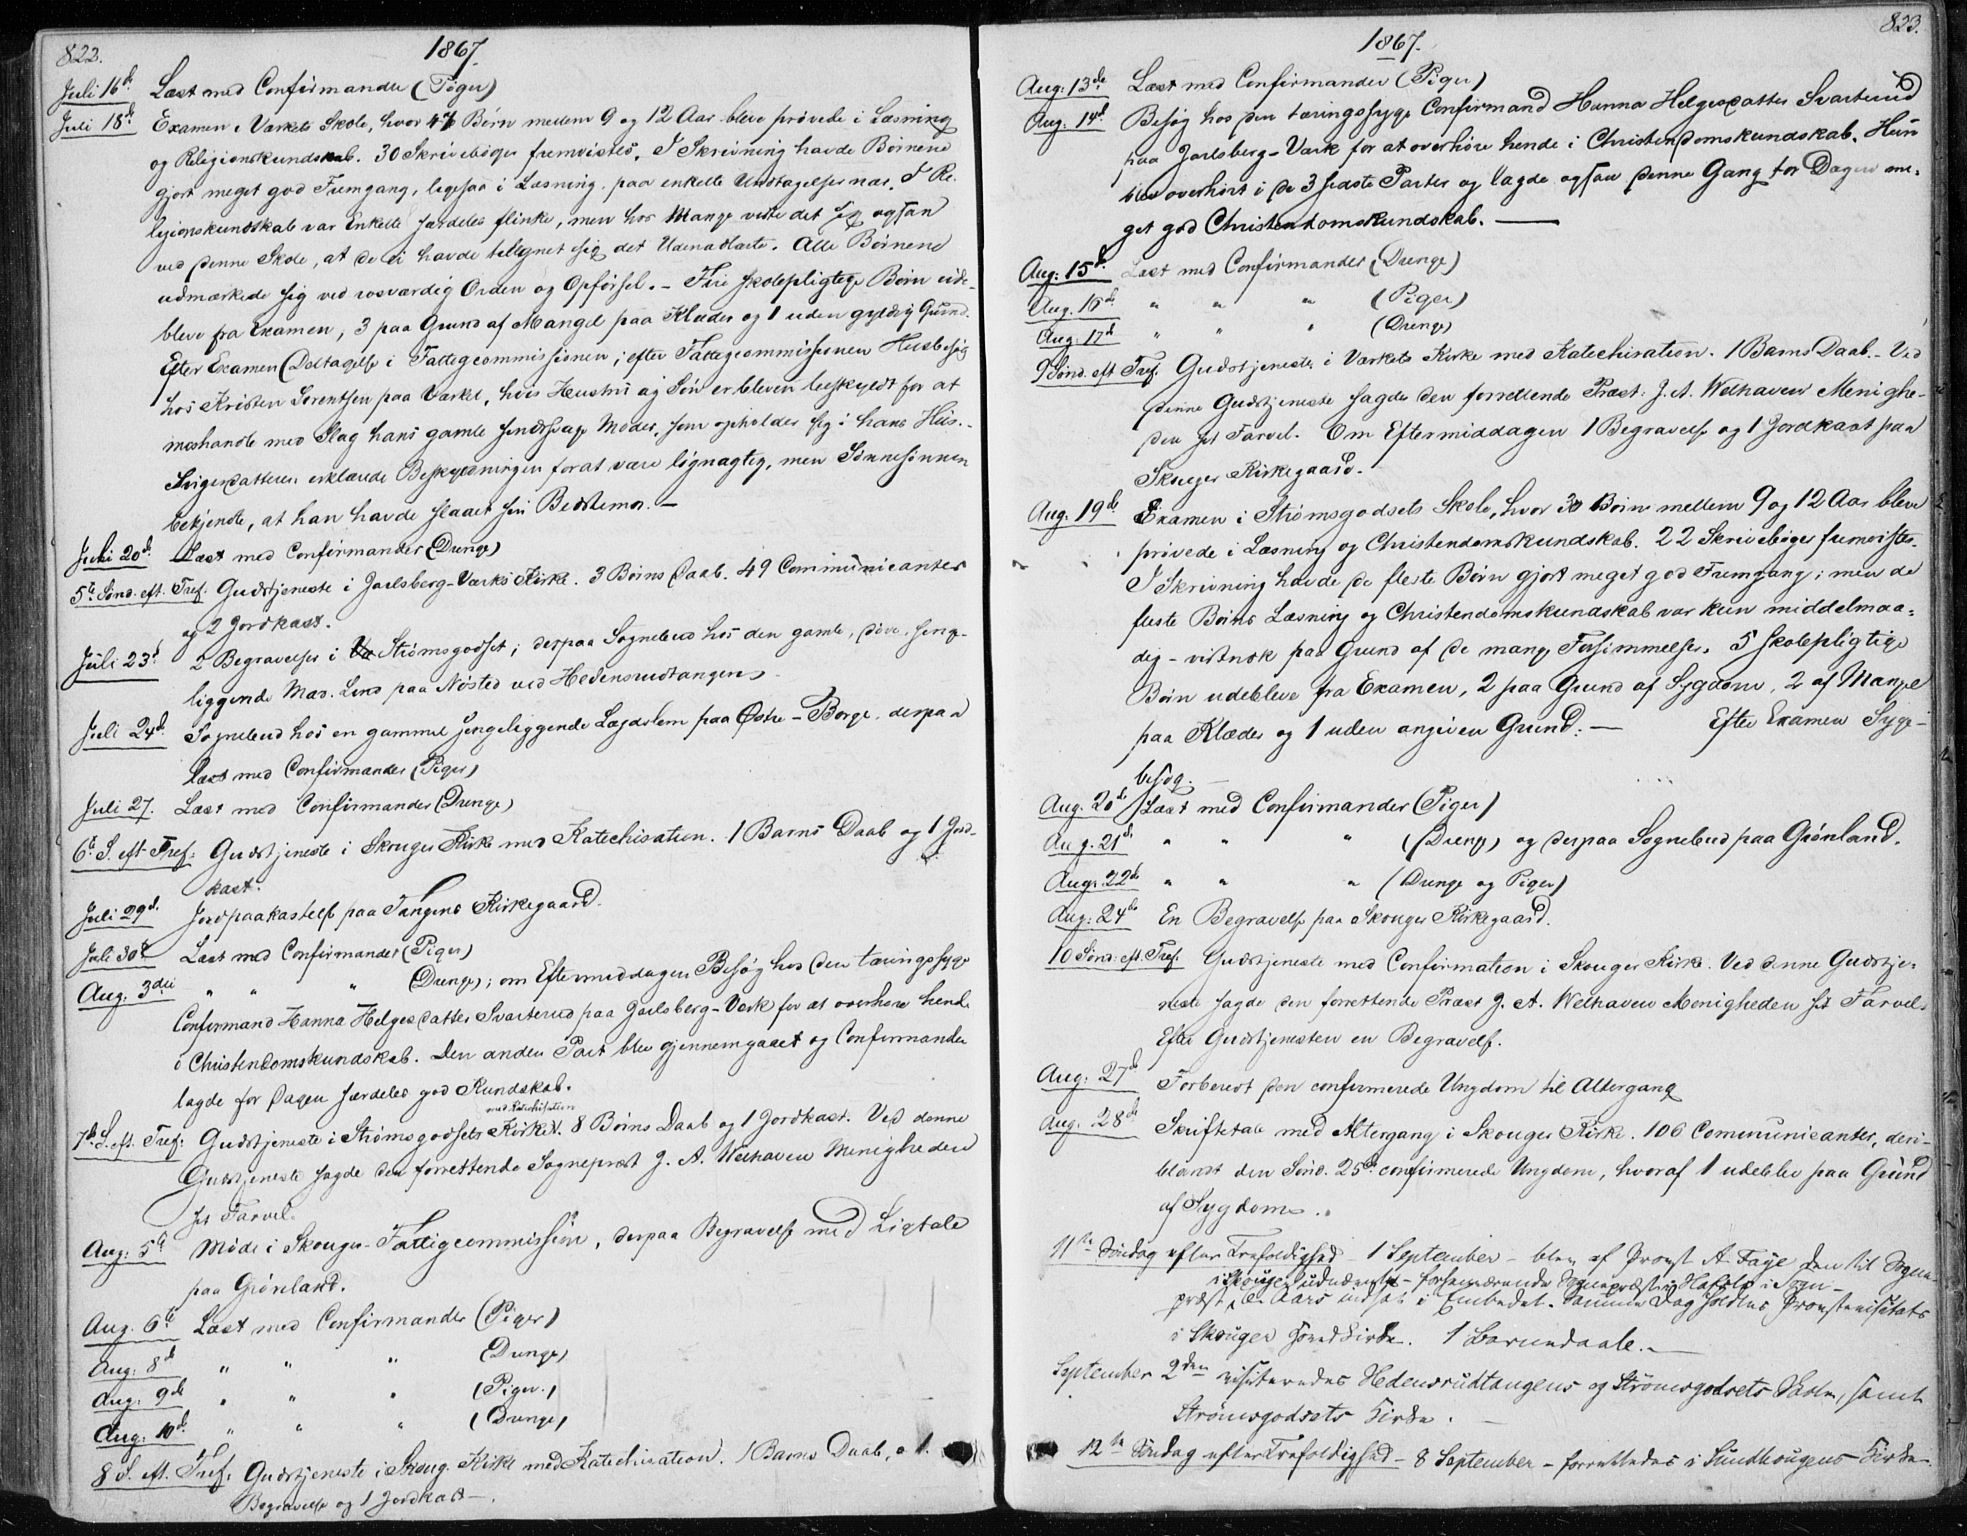 822.
1867.
Juli 16d. Læst med Confirmander (Piger)
Juli 18d. Examen i Værkets Skole, hvor 47 Børn mellem 9 og 12 Aar bleve prøvede i Læsning
og Religionskundskab. 30 Skrivebøger fremvistes. I Skrivning havde Børnene
gjort meget god Fremgang, ligesaa i Læsning, paa enkelte Undtagelser nær. I Re-
ligionskundskab var Enkelte særdeles flinke, men hos Mange viste det sig ogsaa
ved denne Skole, at de ei havde tilegnet sig det Udenadlærte. Alle Børnene
udmærkede sig ved rosværdig Orden og Opførsel. - Fire skolepligtige Børn ude-
bleve fra Examen, 3 paa Grund af Mangel paa Klæder og 1 uden gyldig Grund.
Efter Examen Deltagelse i Fattigcommissionen; efter Fattigcommissionen Husbesøg
hos Kristen Sørentsen paa Værket, hvis Hustru og Søn er bleven beskyldt for at
mishandle med Slag hans gamle Moder, som opholder sig i hans Huus. -
Svigerdatteren erklærede Beskyldningen forat være løgnagtig, men Sønnesønnen
bekjendte, at han havde slaaet sin Bedstemor. -
Juli 20d. Læst med Confirmander (Drenge)
5te Sønd. eft. Tref. Gudstjeneste i Jarlsberg-Værks Kirke. 3 Børns Daab. 49 Communicanter
og 2 Jordkast.
Juli 23d 2 Begravelser i Strømsgodset; derpaa Sognebud hos den gamle, døve, senge-
liggende Mad. Lind paa Nøsted ved Hedensrudtangen.
Juli 24d. Sognebud hos en gammel sengeliggende Lægdslem paa Østre-Borge, derpaa
læst med Confirmander (Piger)
Juli 27. Læst med Confirmander (Drenge)
6te S. eft. Tref. Gudstjeneste i Skouger Kirke med Katechisation. 1 Barns Daab og 1 Jord-
kast.
Juli 29d. Jordpaakastelse paa Tangens Kirkegaard.
Juli 30d Læst med Confirmander (Piger)
Aug. 3die " " " (Drenge); om Eftermiddagen Besøg hos den tæringssyge
Confirmand Hanna Helgesdatter Svarterud paa Jarlsberg-Værk for at overhøre hende
i Christendomskundskab. Den anden Part blev gjennemgaaet og Confirmanden
lagde for Dagen særdeles god Kundskab.
med Katechisation
7de S. eft. Tref: Gudstjeneste i Strømsgodsets Kirke. 8 Børns Daab og 1 Jordkast. Ved denne
Gudstjeneste sagde den forrettende Sognepræst J. A. Welhaven Menigheden
sit Farvel.
Aug: 5te Møde i Skouger-Fattigcommission, derpaa Begravelse med Ligtale
paa Grønland.
Aug. 6te Læst med Confirmander (Piger)
Aug: 8de " " " (Drenge)
Aug: 9de " " " (Piger.)
Aug: 10de " " " (Drenge)
8 S. eft. Tref. Gudstjeneste i Skoug. Kirke med Katechisation. 1 Barns Daab, 1.
Begravelse og 1 Jordkast.
823.
1867.
Aug: 13de Læst med Confirmander (Piger)
Aug: 14d. Besøg hos den tæringssyge Confirmand Hanna Helgesdatter Svarterud
paa Jarlsberg-Værk for at overhøre hende i Christendomskundskab. Hun
blev overhørt i de 3 sidste Parter og lagde ogsaa denne Gang for Dagen me-
get god Christendomskundskab. -
Aug: 15d. Læst med Confirmander (Drenge)
Aug. 16de " " " (Piger)
Aug: 17d " " " (Drenge)
9 Sønd. eft Tref. Gudstjeneste i Værkets Kirke med Katechisation. 1 Barns Daab. - Ved
denne Gudstjeneste sagde den forrettende Præst: J. A. Welhaven Menighe-
den sit Farvel. Om Eftermiddagen 1 Begravelse og 1 Jordkast paa
Skouger Kirkegaard.
Aug. 19de Examen i Strømsgodsets Skole, hvor 30 Børn mellem 9 og 12 Aar bleve
prøvede i Læsning og Christendomskundskab. 22 Skrivebøger fremvistes.
I Skrivning havde de fleste Børn gjort meget god Fremgang; men de
fleste Børns Læsning og Christendomskundskab var kun middelmaa-
dig - vistnok paa Grund af de mange Forsømmelser. 5 skolepligtige
Børn udebleve fra Examen, 2 paa Grund af Sygdom, 2 af Mangel
paa Klæder og 1 uden angiven Grund. - Efter Examen Syge-
besøg. -
Aug. 20de Læst med Confirmander (Piger)
Aug. 21de " " " (Drenge) og derpaa Sognebud paa Grønland.
Aug: 22de " " " (Drenge og Piger)
Aug: 24de En Begravelse paa Skouger Kirkegaard.
10 Sønd: eft. Tref: Gudstjeneste med Confirmation i Skouger Kirke. Ved denne Gudstje-
neste sagde den forrettende Præst J. A. Welhaven Menigheden sit Farvel.
Efter Gudstjenesten en Begravelse.
Aug: 27de Forberedt den confirmerede Ungdom til Altergang
Aug. 28de Skriftetale med Altergang i Skouger Kirke. 106 Communicanter, deri-
blandt den Sønd. 25de confirmerede Ungdom, hvoraf 1 udeblev paa Grund
af Sygdom.
11te Søndag efter Trefoldighed - 1 September - blev af Provst A. Faye den til Sogne-
i Skouger udnævnte - forhenværende Sognepræst i Hafslo i Sogn -
præst, Aars indsat i Embedet. Samme Dag holdtes Provstevisitats
i Skouger Hovedkirke. 1 Barnedaab. -
September 2den visiteredes Hedensrudtangens og Strømsgodsets Skoler, samt
Strømsgodsets Kirke. -
12te Søndag efter Trefoldighed - 8 September - forrettedes i Sundhougens Kirke.